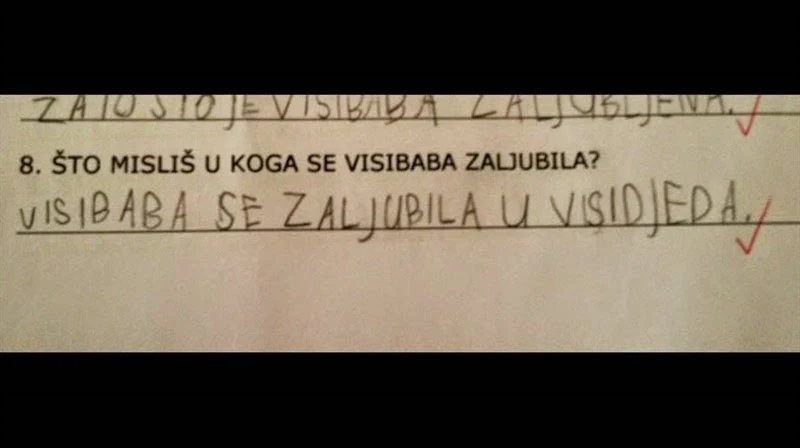 ZATO ŠTO JE VISIBABA ZALJUBLJENA.
8. ŠTO MISLIŠ U KOGA SE VISIBABA ZALJUBILA?
VISIBABA SE ZALJUBILA U VISIDJEDA.